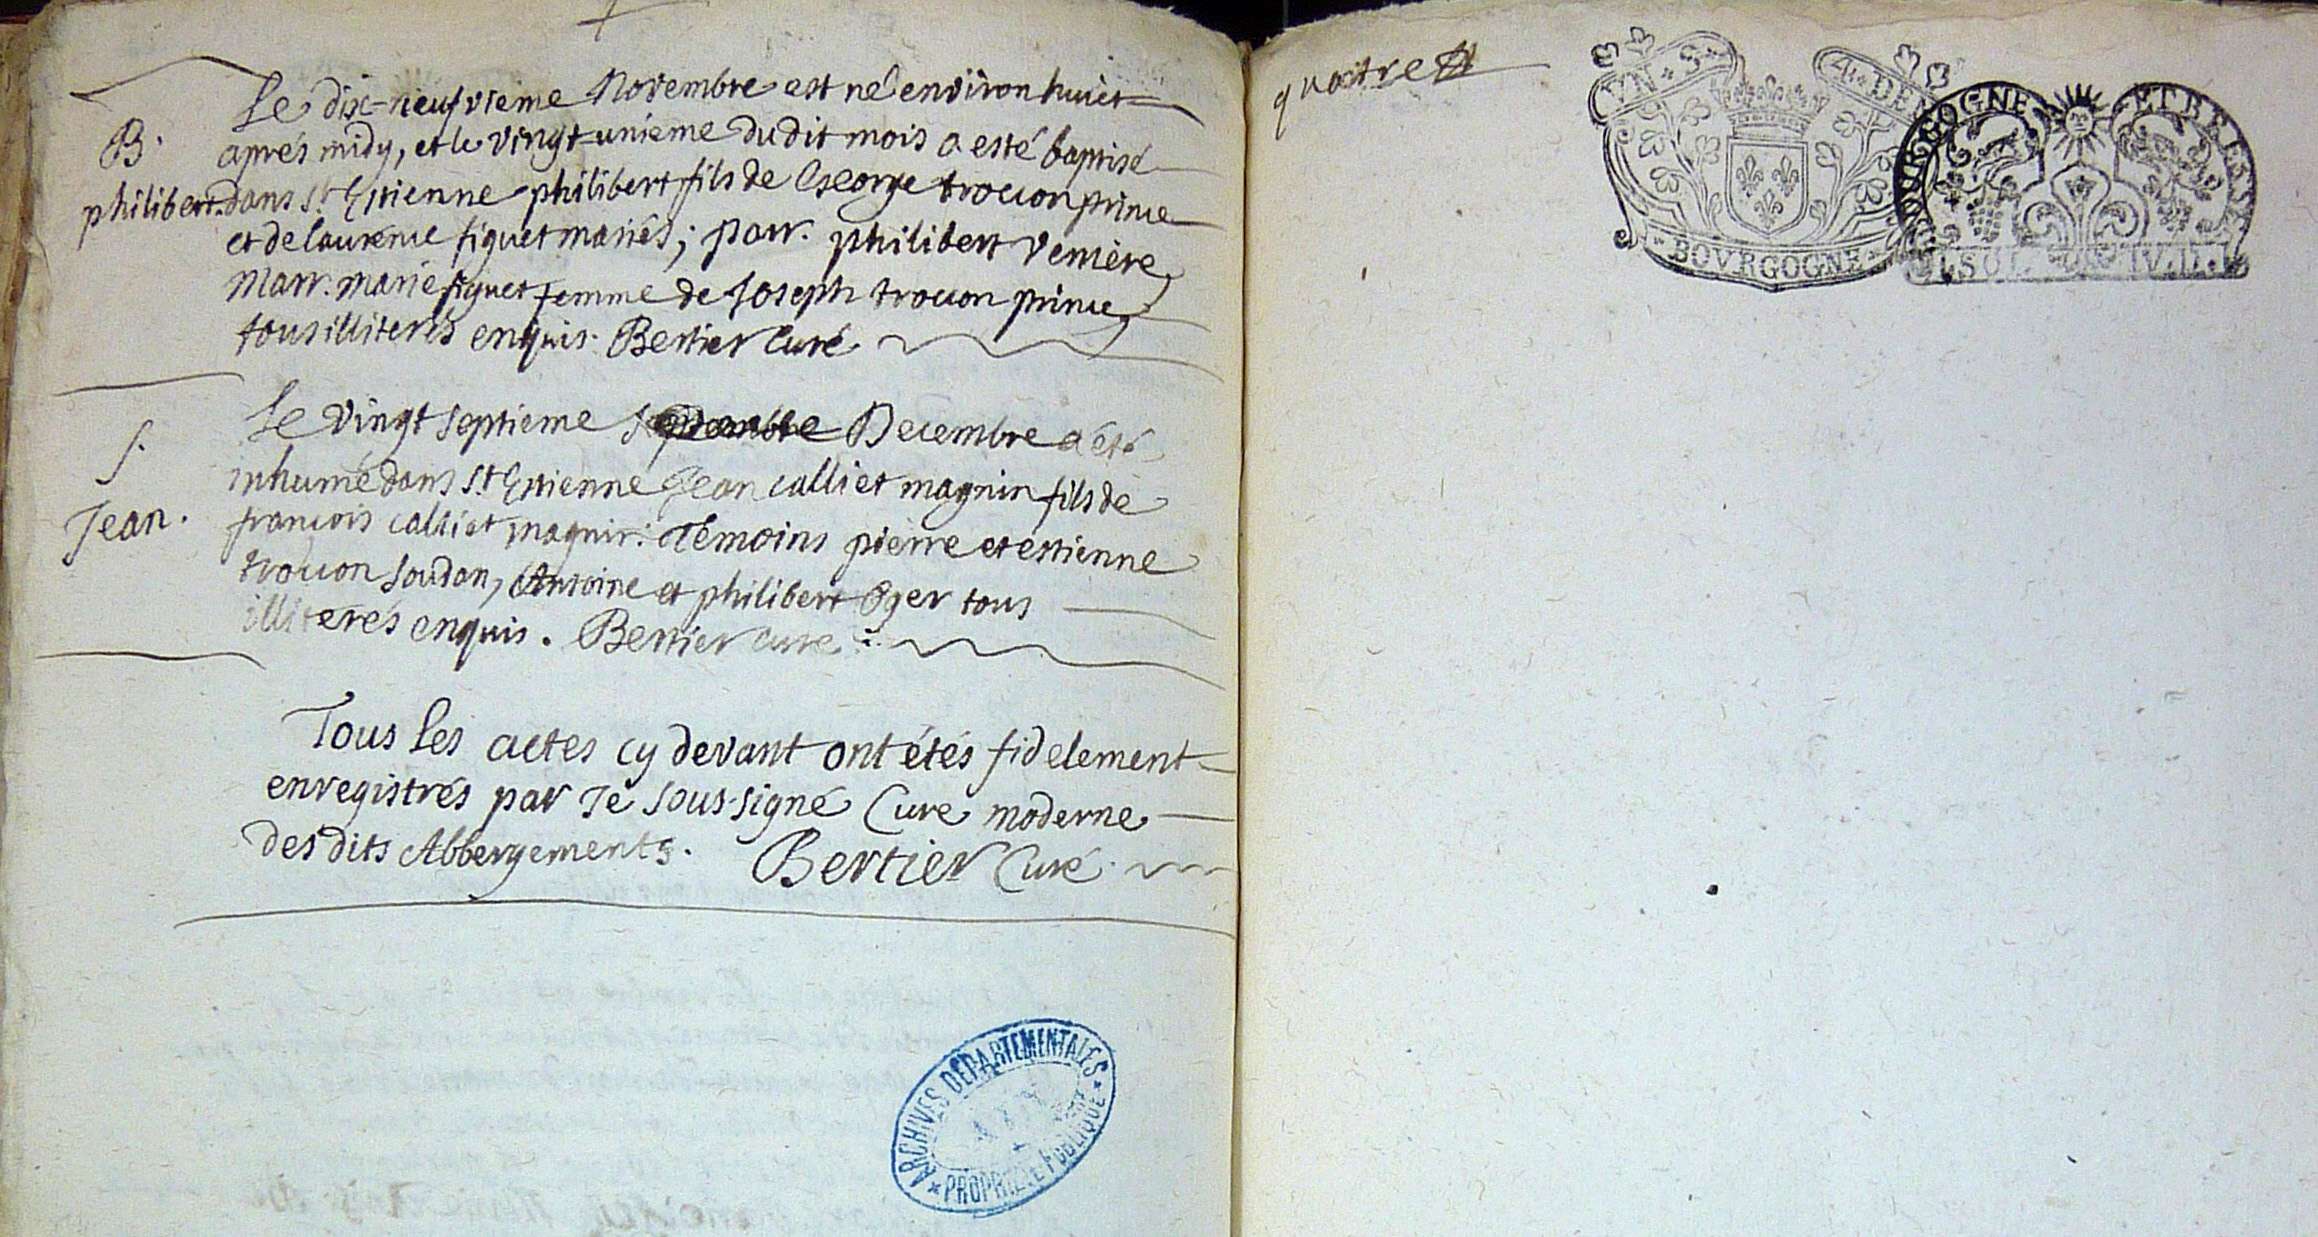 Le dix-neufvieme Novembre est né environ huict
B. après midy, et le vingt-unieme dudit mois a esté baptisé
philibert. dans St Estienne philibert fils de George trocon prince
et de laurence figuet mariés; parr. philibert verriere
Marr. marie figuet femme de Joseph trocon prince
tous illiterés enquis. Bertier Curé
Le vingt septieme Decembre a été
S. inhumé dans St Estienne Jean calliet magnin fils de
Jean. francois calliet magnin. Témoins pierre et estienne
trocon soudan, Antoine et philibert Oger tous
illiterés enquis. Bertier curé
Tous les actes cy devant ont étés fidelement
enregistrés par Je sous-signé Curé moderne
des dits Abbergements. Bertier Curé.
ARCHIVES DÉPARTEMENTALES
AIN
PROPRIÉTÉ PUBLIQUE
quatre
VN·S· 4·DEN
BOVRGOGNE
BOURGOGNE ET BRESSE